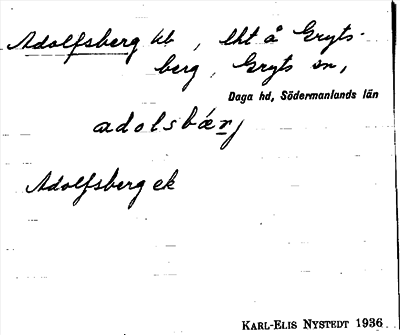 Adolfsberg hb, lht å Gryts-
berg, Gryts sn,
Daga hd, Södermanlands län
adolsbærj
Adolfsberg ek
KARL-ELIS NYSTEDT 1936